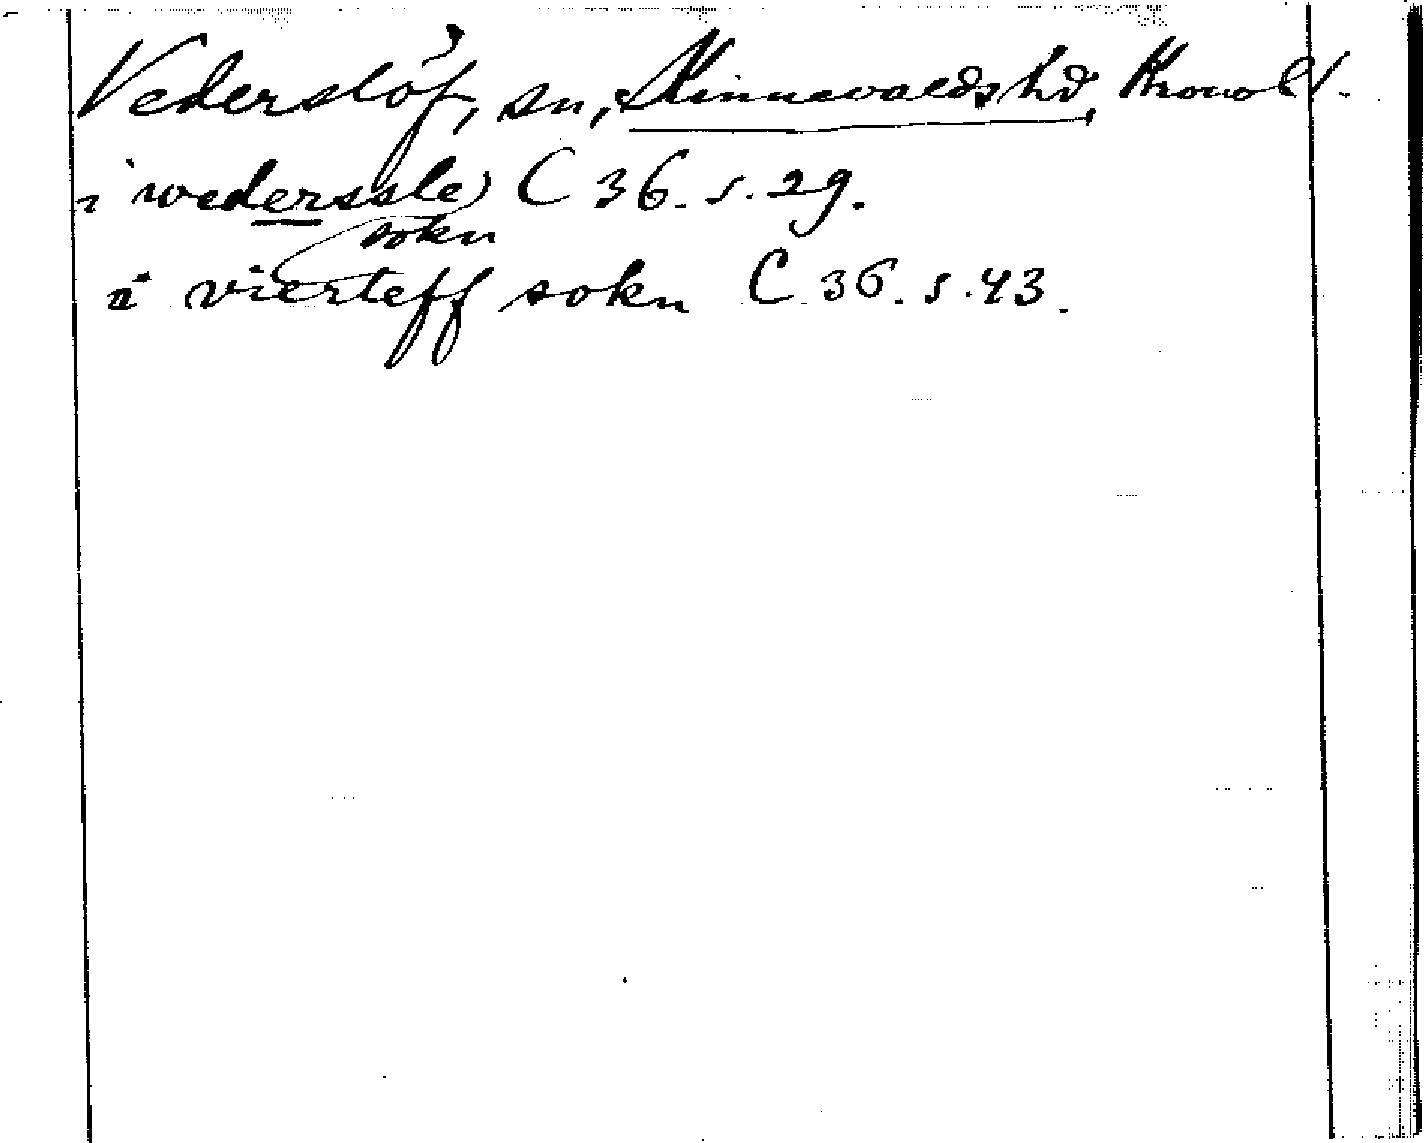 Vederslöf, sn, Kinnevalds hd, Kronob l.
i wederssle C 36. s. 29.
sokn
i vierteff sokn C 36. s. 43.